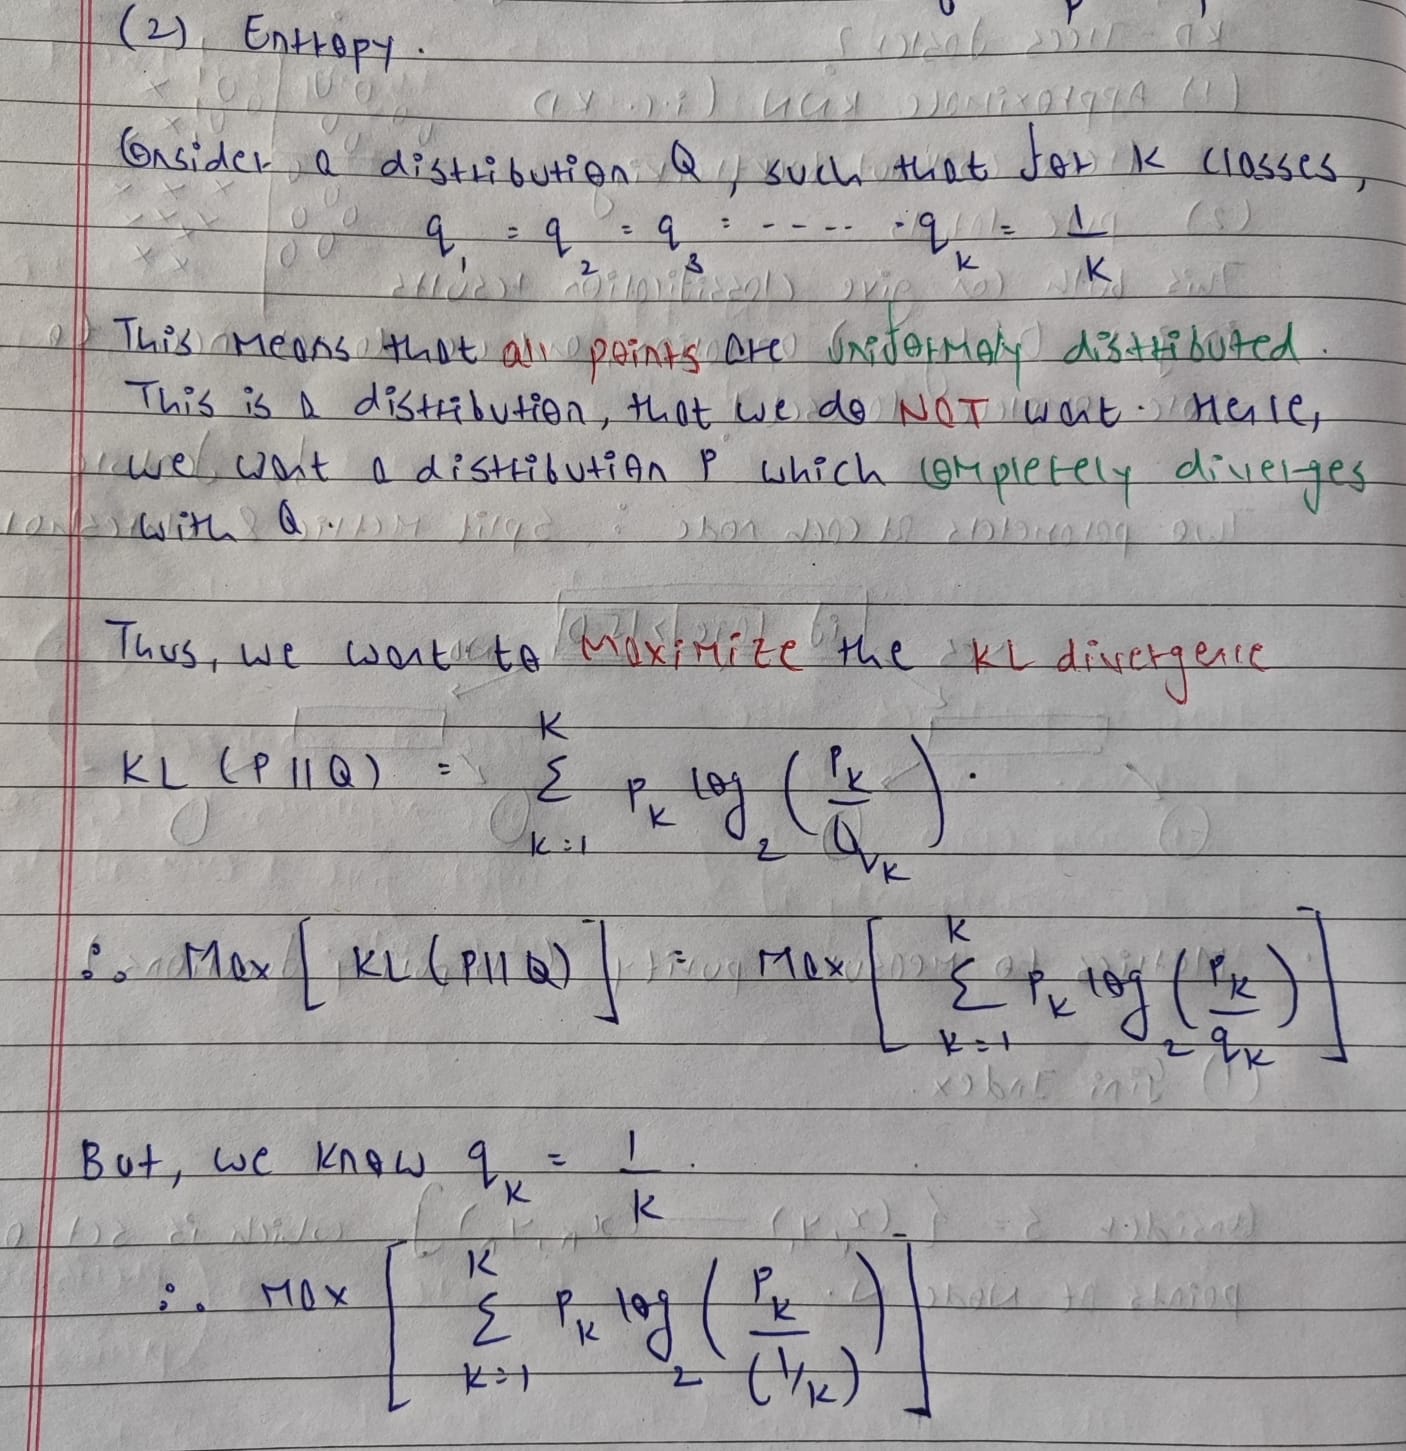 (2) Entropy.
Consider a distribution Q, such that for K classes,
q₁ = q₂ = q₃ = ---- = q_K = 1/K
This means that all points are uniformaly distributed.
This is a distribution, that we do NOT want. Hence,
we want a distribution P which completely diverges
with Q.
Thus, we want to maximize the KL divergence
KL (P || Q) = Σ_{K=1}^{K} P_K log₂ (P_K / Q_K).
∴ Max [ KL (P || Q) ] = Max [ Σ_{K=1}^{K} P_K log₂ (P_K / q_K) ]
But, we know q_K = 1/K.
∴ Max [ Σ_{K=1}^{K} P_K log₂ (P_K / (1/K)) ]